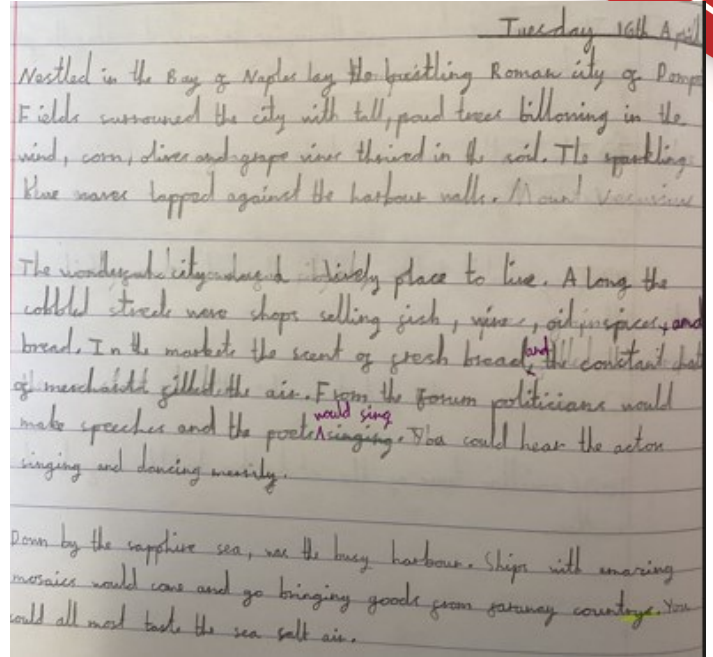 Tuesday 16th April
Nestled in the Bay of Naples lay the bustling Roman city of Pomp
Fields surrouned the city with tall, poud trees billoning in the
wind, corn, olives and grape vines thrived in the soil. The sparkling
blue waves lapped against the harbour walls. Mount Vesuvius
The wonderful city was a lively place to live. A Long the
cobbled streets were shops selling fish, wine, oil, spices, and
bread. In the markets the scent of fresh bread and the constant chat
of merchants filled the air. From the Forum politicians would
make speeches and the poets would sing singing. You could hear the actors
singing and dancing merrily.
Down by the sapphire sea, was the busy harbour. Ships with amazing
mosaics would come and go bringing goods from faraway countrys. You
could all most taste the sea salt air.